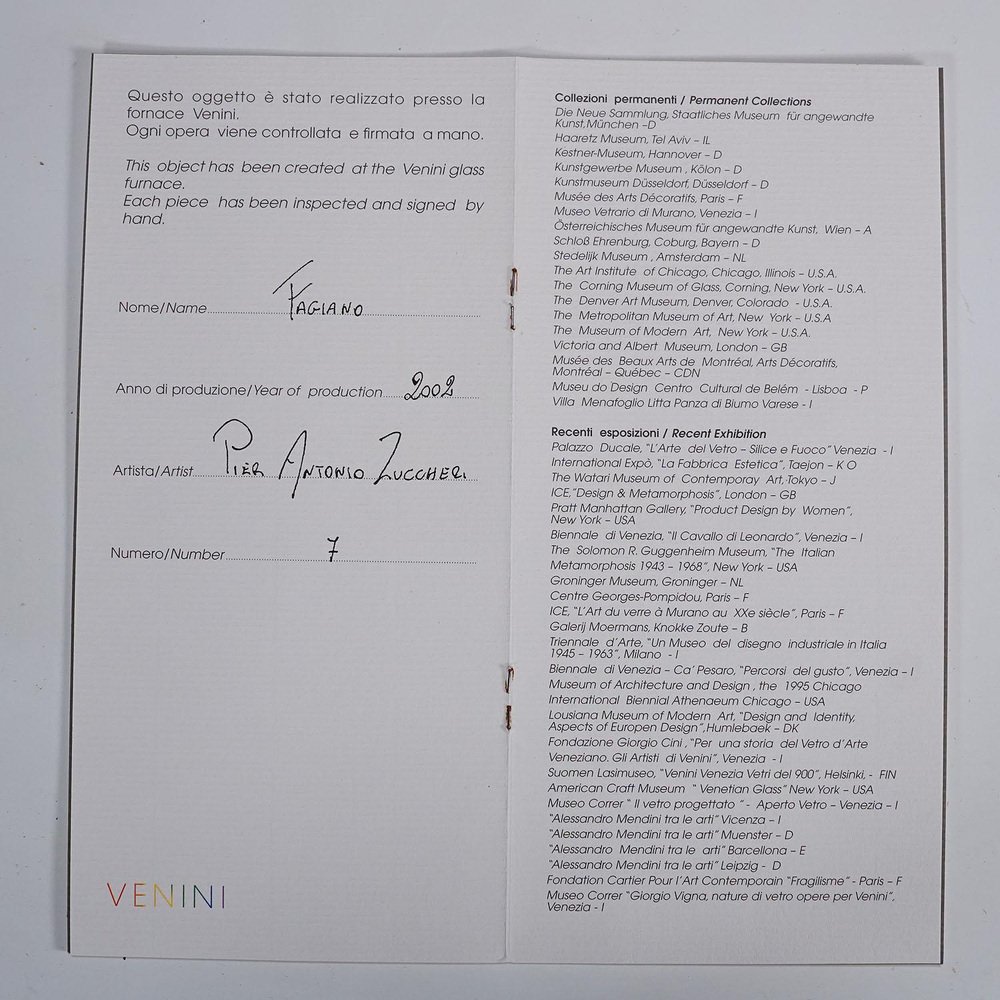 Questo oggetto è stato realizzato presso la
fornace Venini.
Ogni opera viene controllata e firmata a mano.
This object has been created at the Venini glass
furnace.
Each piece has been inspected and signed by
hand.
Nome/Name FAGIANO
Anno di produzione/Year of production 2002
Artista/Artist PIER ANTONIO ZUCCHERI
Numero/Number 7
VENINI
Collezioni permanenti / Permanent Collections
Die Neue Sammlung, Staatliches Museum für angewandte
Kunst,München –D
Haaretz Museum, Tel Aviv – IL
Kestner-Museum, Hannover – D
Kunstgewerbe Museum , Kölon – D
Kunstmuseum Düsseldorf, Düsseldorf – D
Musée des Arts Décoratifs, Paris – F
Museo Vetrario di Murano, Venezia – I
Österreichisches Museum für angewandte Kunst, Wien – A
Schloß Ehrenburg, Coburg, Bayern – D
Stedelijk Museum , Amsterdam – NL
The Art Institute of Chicago, Chicago, Illinois – U.S.A.
The Corning Museum of Glass, Corning, New York – U.S.A.
The Denver Art Museum, Denver, Colorado - U.S.A.
The Metropolitan Museum of Art, New York – U.S.A
The Museum of Modern Art, New York – U.S.A.
Victoria and Albert Museum, London – GB
Musée des Beaux Arts de Montréal, Arts Décoratifs,
Montréal – Québec – CDN
Museu do Design Centro Cultural de Belém - Lisboa - P
Villa Menafoglio Litta Panza di Biumo Varese - I
Recenti esposizioni / Recent Exhibition
Palazzo Ducale, "L'Arte del Vetro – Silice e Fuoco" Venezia - I
International Expò, "La Fabbrica Estetica", Taejon – K O
The Watari Museum of Contemporay Art, Tokyo – J
ICE,"Design & Metamorphosis", London – GB
Pratt Manhattan Gallery, "Product Design by Women",
New York – USA
Biennale di Venezia, "Il Cavallo di Leonardo", Venezia – I
The Solomon R. Guggenheim Museum, "The Italian
Metamorphosis 1943 – 1968", New York – USA
Groninger Museum, Groninger – NL
Centre Georges-Pompidou, Paris – F
ICE, "L'Art du verre à Murano au XXe siècle", Paris – F
Galerij Moermans, Knokke Zoute – B
Triennale d'Arte, "Un Museo del disegno industriale in Italia
1945 – 1963", Milano - I
Biennale di Venezia – Ca' Pesaro, "Percorsi del gusto", Venezia – I
Museum of Architecture and Design , the 1995 Chicago
International Biennial Athenaeum Chicago – USA
Lousiana Museum of Modern Art, "Design and Identity,
Aspects of Europen Design",Humlebaek – DK
Fondazione Giorgio Cini , "Per una storia del Vetro d'Arte
Veneziano. Gli Artisti di Venini", Venezia - I
Suomen Lasimuseo, "Venini Venezia Vetri del 900", Helsinki, - FIN
American Craft Museum " Venetian Glass" New York – USA
Museo Correr " Il vetro progettato "- Aperto Vetro – Venezia – I
"Alessandro Mendini tra le arti" Vicenza – I
"Alessandro Mendini tra le arti" Muenster – D
"Alessandro Mendini tra le arti" Barcellona – E
"Alessandro Mendini tra le arti" Leipzig - D
Fondation Cartier Pour l'Art Contemporain "Fragilisme" - Paris – F
Museo Correr "Giorgio Vigna, nature di vetro opere per Venini",
Venezia - I